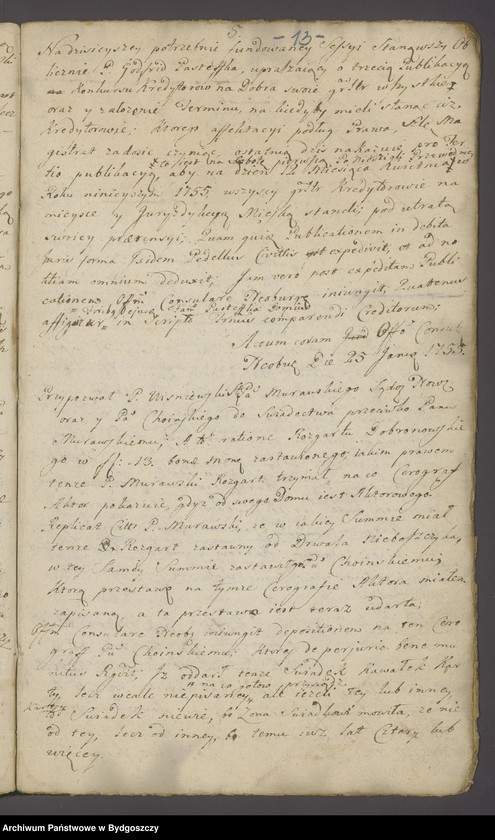 5 - 13 -
Nadzisieyszey potrzebnie fundowaney Sessyi Stanąwszy Ob
licznie P. Godfryd Pasteffka, upraszaiąc o trzecią Publikacyą
Konkursu Kredytorow na Dobra swoie
oraz y założenie Terminu, na kiedyby mieli stanąć
Kredytorowie; ktorey affektacyi podług Prawa, Ma
gistrat zadosić czyniąc, ostatnią dziś nakazuie, ero Ter
tio publikacyą, aby na dzień 12 Miesiąca Kwietnia
to iest na Sobotę pierwszą Po Niedzieli Przewodney
Roku ninieyszym 1755, wszyscy Kredytorowie na
mieyscu y Jurysdykcyą Mieyską stanęli; pod utratą
swoiey prætensyi; Quam quia Publicationem in debita
Juris forma Ibidem Pedellus Civilis expedivit, et ad no
titiam omnium deduxit; Jam vero post expeditam Publi
cationem Offm Consulare Neoburg: iniungit, Quatenus
affigatur in Scripto comparendi Creditorum;
Actum coram Offo Consul
Neobug Die 25 Janry 1755.
Przypozwał P. Wiśniewski Pa Murawskiego Sędz
oraz y Pa Choińskiego do Swiadectwa przeciwko Panu
Murawskiemu, A to ratione Rozgartu Dobronowskie
go w f: 13. bonæ monæ zastawionego; iakim prawem
tenże P. Murawski Rozgart trzymał, na co Cerograf
Aktor pokazuie, gdyż od swego Domu iest Aktorowego.
Replicat Citt P. Murawski, że w takiey Summie miał
tenże Rozgart zastawny od Drwala Nieboszczyka,
w tey samey Summie zastawił Pu Choinskiemu,
Którą przestawę na tymże Cerografie Aktora miałem
zapisaną, a ta przestawa iest teraz udarta;
Offm Consulare Neob: iniungit depositionem na ten Cero
graf Pu Choinskiemu; Ktory de perjurio bene mo
nitus Rgtt; Iż oddarł tenże Swiadek kawałek Kar
ty, lecz wcale niepisaney, ale ieżeli tey lub inney,
na co gotow przysiądz
to Swiadek niewie, bo Żona Swiadkowi mowiła, że nie
od tey, lecz od inney, bo temu iuż lat Cztery lub
więcey.
Archiwum Państwowe w Bydgoszczy